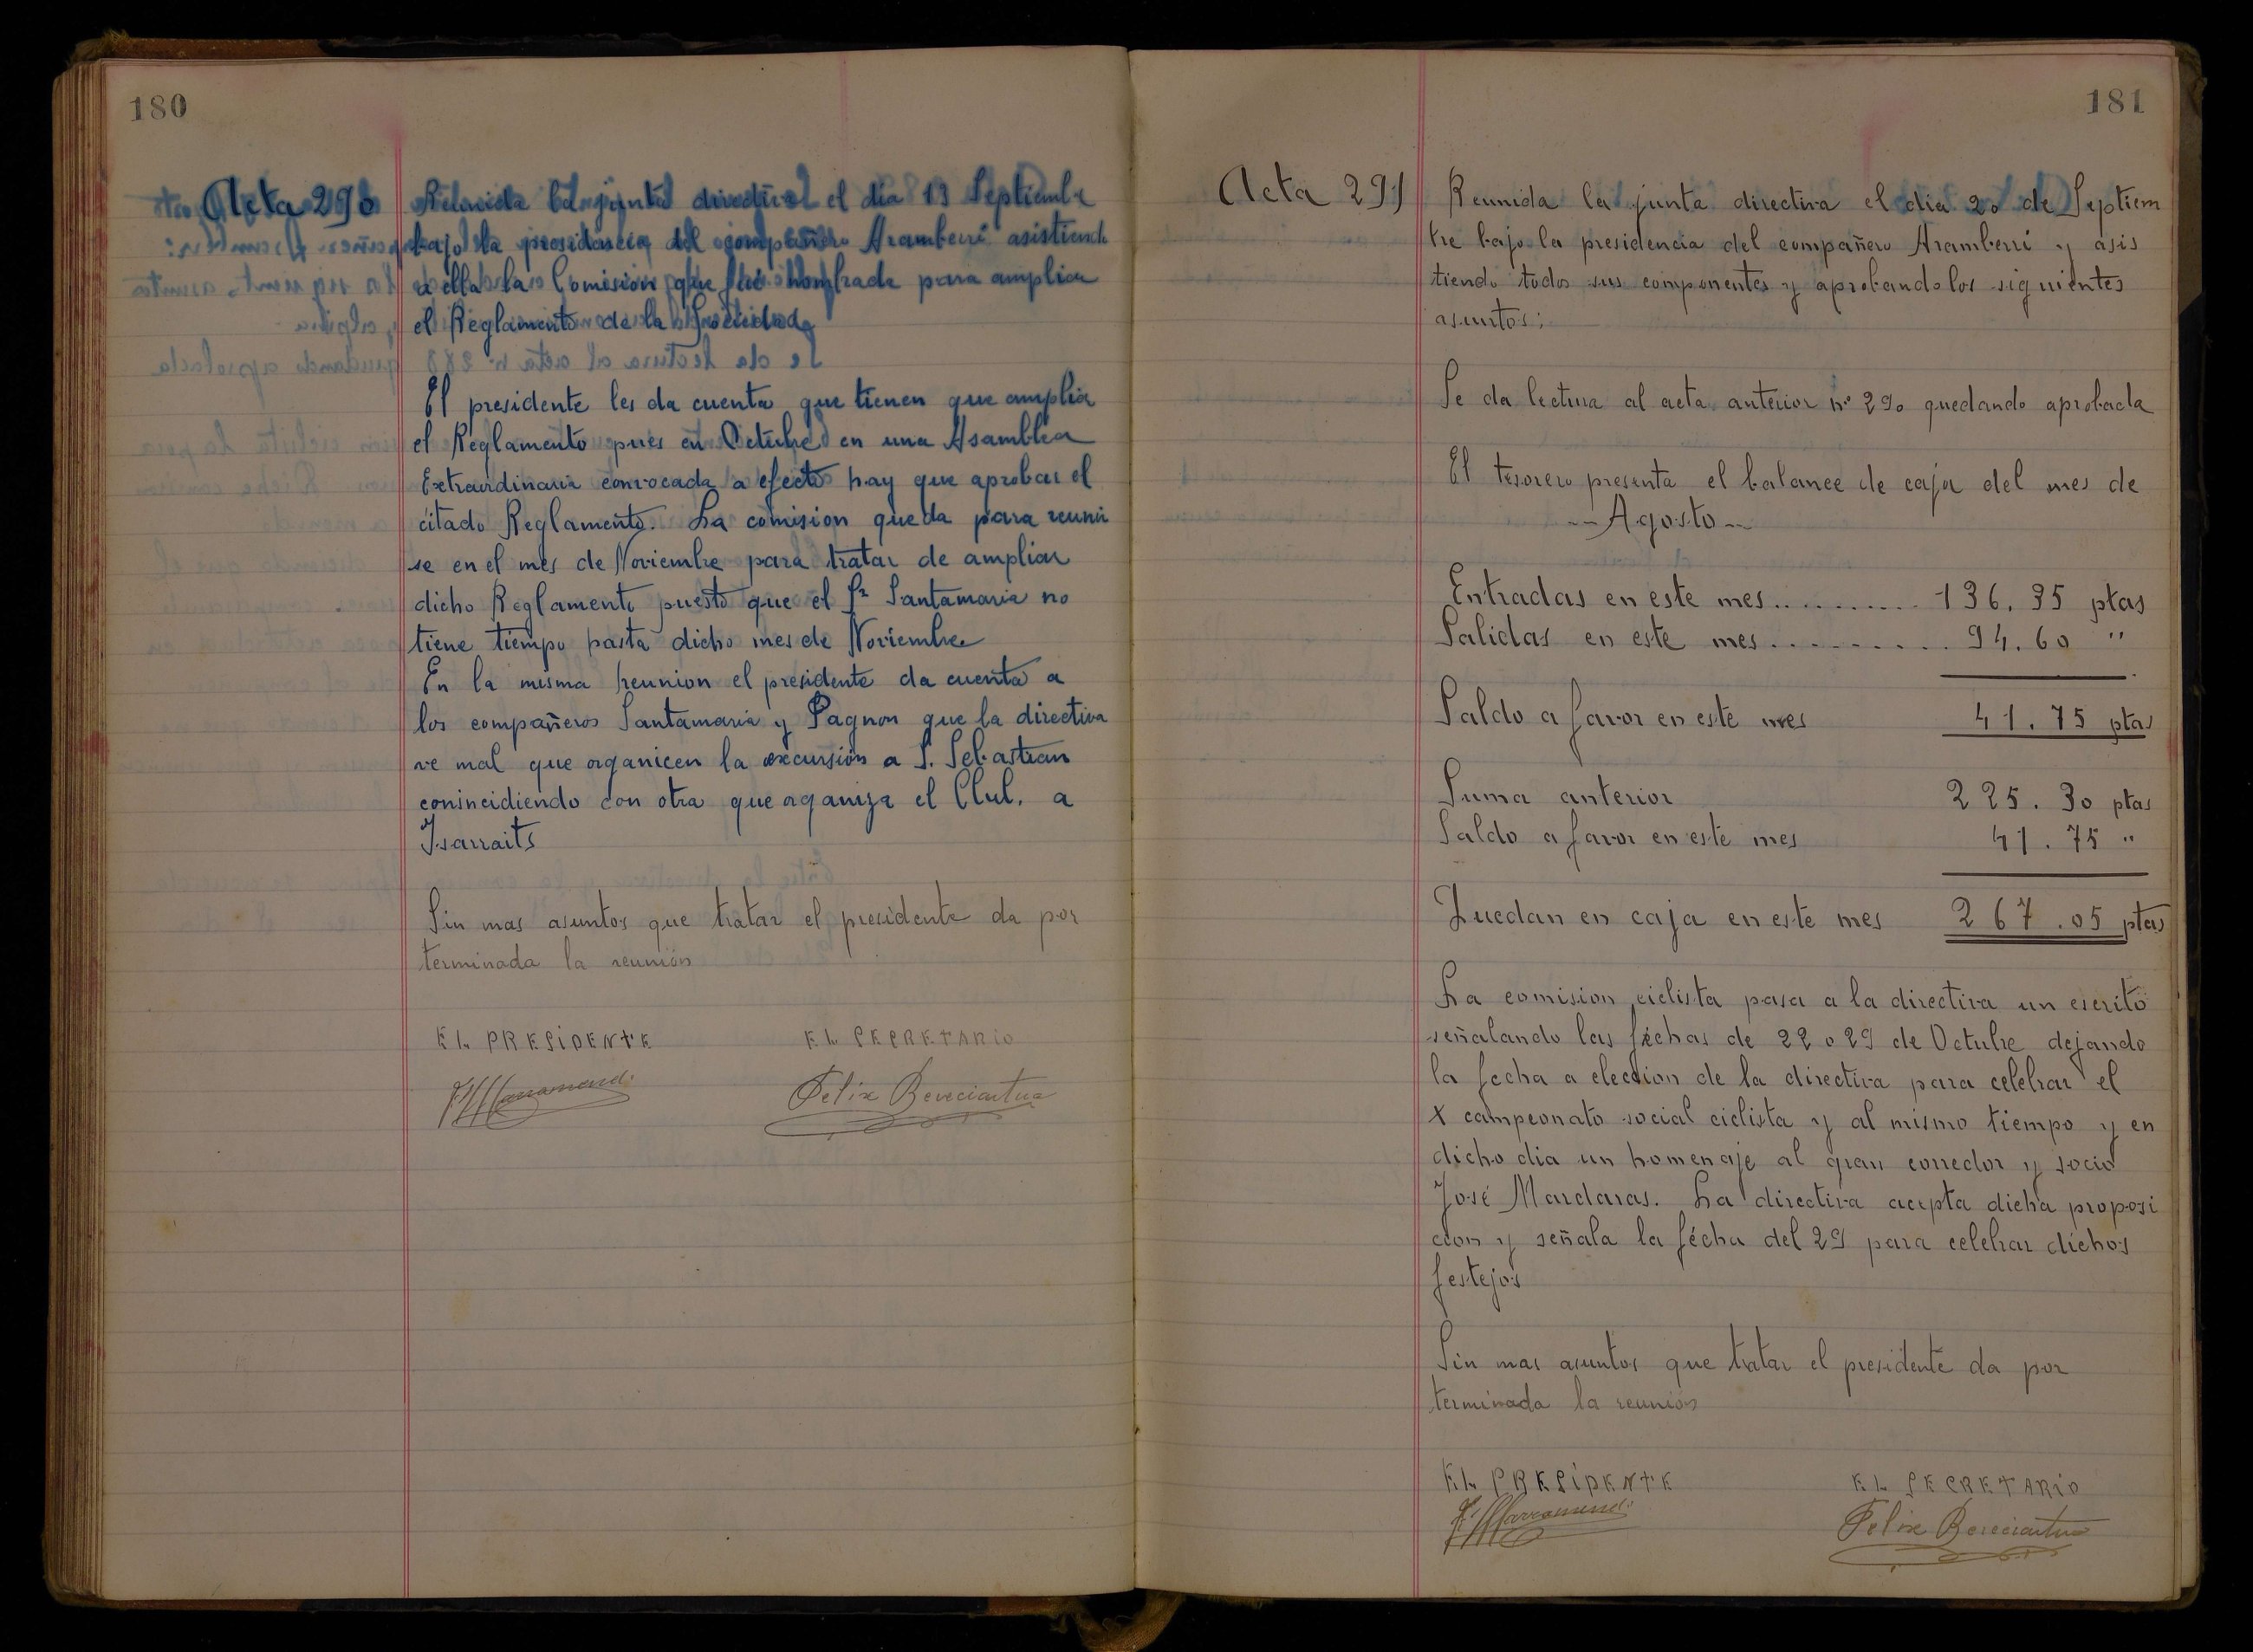 180
Acta 290
Reunida la junta directiva el dia 13 Septiembre
bajo la presidencia del compañero Aramberri asistiendo
a ella la Comisión que fué nombrada para ampliar
el Reglamento de la Sociedad
El presidente les da cuenta que tienen que amplia
el Reglamento pues en Octubre en una Asamblea
Extraordinaria convocada a efecto hay que aprobar el
citado Reglamento. La comision queda para reunir
se en el mes de Noviembre para tratar de ampliar
dicho Reglamento puesto que el Sr Santamaria no
tiene tiempo hasta dicho mes de Noviembre
En la misma reunion el presidente da cuenta a
los compañeros Santamaria y Pagnon que la directiva
ve mal que organicen la excursión a S. Sebastian
conincidiendo con otra que organiza el Club. a
Isarraits
Sin mas asuntos que tratar el presidente da por
terminada la reunión
EL PRESIDENTE EL SECRETARIO
Felix Bereciartua
181
Acta 291
Reunida la junta directiva el dia 20 de Septiem
bre bajo la presidencia del compañero Aramberri y asis
tiendo todos sus componentes y aprobando los siguientes
asuntos:
Se da lectura al acta anterior nº 290 quedando aprobada
El tesorero presenta el balance de caja del mes de
-- Agosto --
Entradas en este mes.......... 136.35 ptas
Salidas en este mes.......... 94.60 "
Saldo a favor en este mes 41.75 ptas
Suma anterior 225.30 ptas
Saldo a favor en este mes 41.75 "
Quedan en caja en este mes 267.05 ptas
La comision ciclista pasa a la directiva un escrito
señalando las féchas de 22 o 29 de Octubre dejando
la fecha a eleccion de la directiva para celebrar el
X campeonato social ciclista y al mismo tiempo y en
dicho dia un homenaje al gran corredor y socio
José Mardaras. La directiva acepta dicha proposi
cion y señala la fécha del 29 para celebrar dichos
festejos
Sin mas asuntos que tratar el presidente da por
terminada la reunión
EL PRESIDENTE EL SECRETARIO
Felix Bereciartua